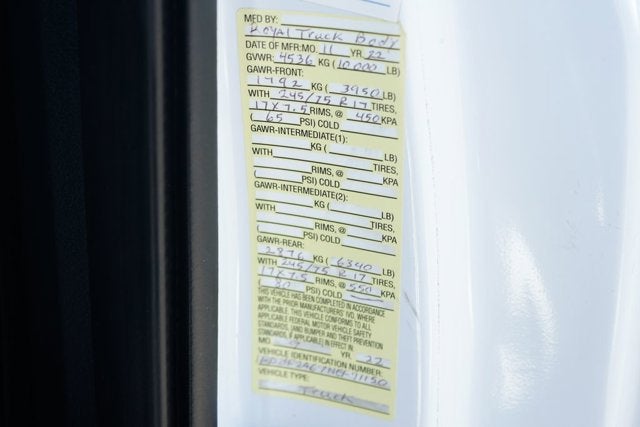 MFD BY:
Royal Truck Body
DATE OF MFR: MO. 11 YR. 22
GVWR: 4536 KG (10,000 LB)
GAWR-FRONT:
1792 KG ( 3950 LB)
WITH 245/75 R17 TIRES,
17X7.5 RIMS, @ 450 KPA
( 65 PSI) COLD
GAWR-INTERMEDIATE(1):
KG ( LB)
WITH TIRES,
RIMS, @ KPA
( PSI) COLD
GAWR-INTERMEDIATE(2):
KG ( LB)
WITH TIRES,
RIMS, @ KPA
( PSI) COLD
GAWR-REAR:
2876 KG ( 6340 LB)
WITH 245/75 R17 TIRES,
17X7.5 RIMS, @ 550 KPA
( 80 PSI) COLD
THIS VEHICLE HAS BEEN COMPLETED IN ACCORDANCE
WITH THE PRIOR MANUFACTURERS' IVD, WHERE
APPLICABLE. THIS VEHICLE CONFORMS TO ALL
APPLICABLE FEDERAL MOTOR VEHICLE SAFETY
STANDARDS, [AND BUMPER AND THEFT PREVENTION
STANDARDS, IF APPLICABLE] IN EFFECT IN
MO. YR. 22
VEHICLE IDENTIFICATION NUMBER:
VEHICLE TYPE:
Truck